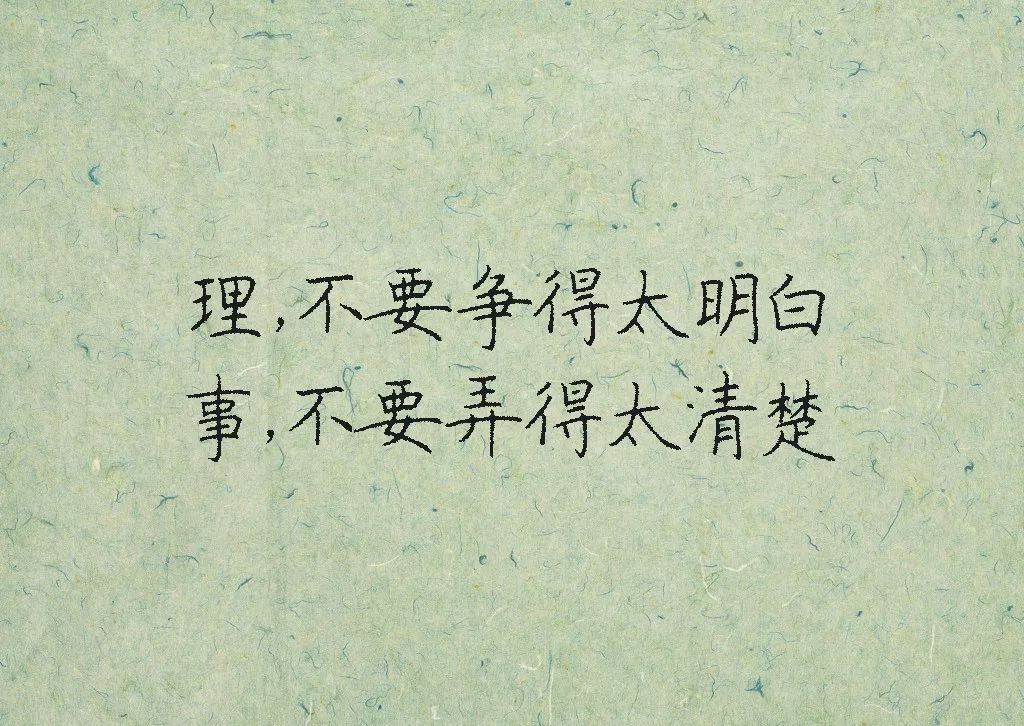 理,不要争得太明白
事,不要弄得太清楚